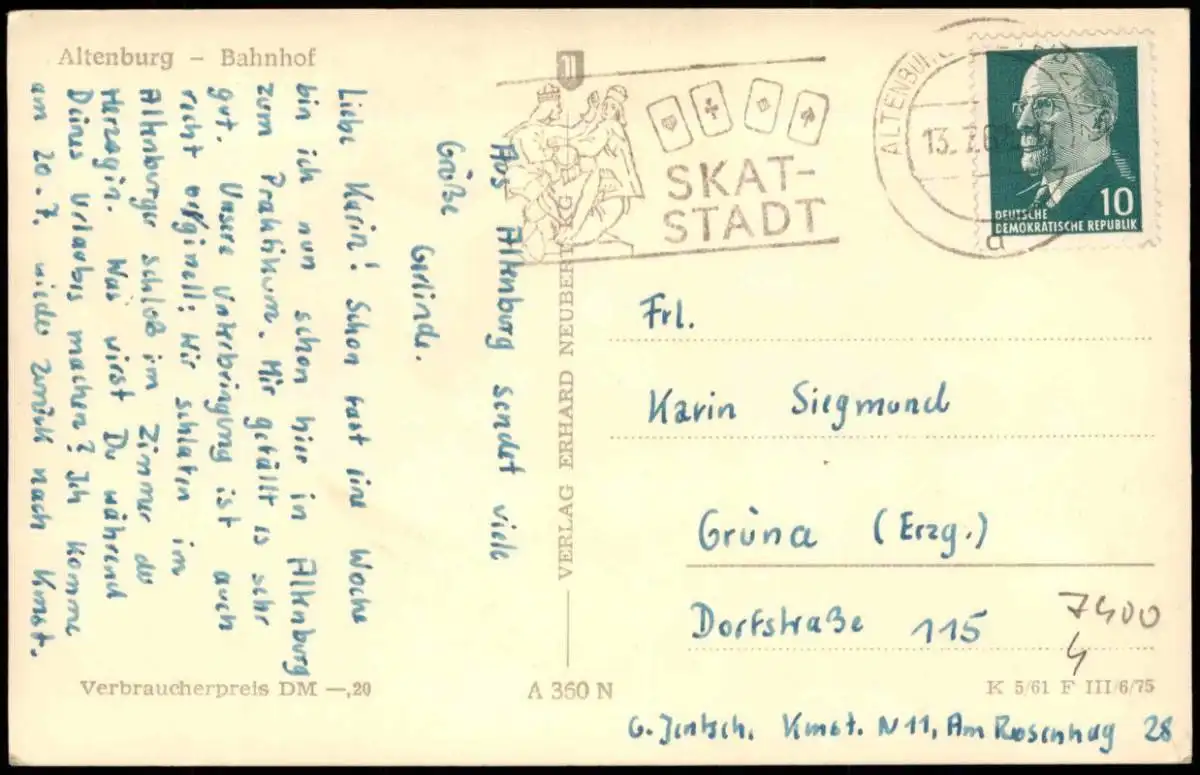 Altenburg – Bahnhof
Liebe Karin! Schon fast eine Woche
bin ich nun schon hier in Altenburg
zum Praktikum. Mir gefällt es sehr
gut. Unsere Unterbringung ist auch
recht originell; wir schlafen im
Altenburger Schloß im Zimmer der
Herzogin. Was wirst Du während
Deines Urlaubs machen? Ich komme
am 20.7. wieder zurück nach Kmst.
Aus Altenburg sendet viele
Grüße
Gerlinde.
VERLAG ERHARD NEUBERT KG
SKAT-
STADT
ALTENBURG
13.7.6
10
DEUTSCHE
DEMOKRATISCHE REPUBLIK
Frl.
Karin Siegmund
Grüna (Erzg.)
Dorfstraße 115
7400
4
Verbraucherpreis DM —,20
A 360 N
K 5/61 F III/6/75
G. Jentsch. Kmst. N 11, Am Rosenhag 28